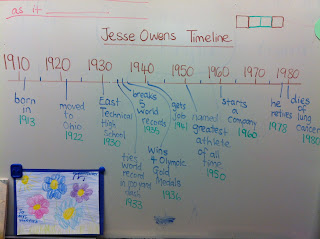 as it
Jesse Owens Timeline
1910 1920 1930 1940 1950 1960 1970 1980
born
in
1913
moved
to
Ohio
1922
East
Technical
High
School
1930
ties
world
record
in 100 yard
dash
1933
breaks
5
world
records
1935
Wins
4 Olympic
Gold
Medals
1936
gets
Job
1941
named
greatest
athlete
of all
time
1950
starts
a
company
1960
he
retires
1978
dies
of
lung
cancer
1980